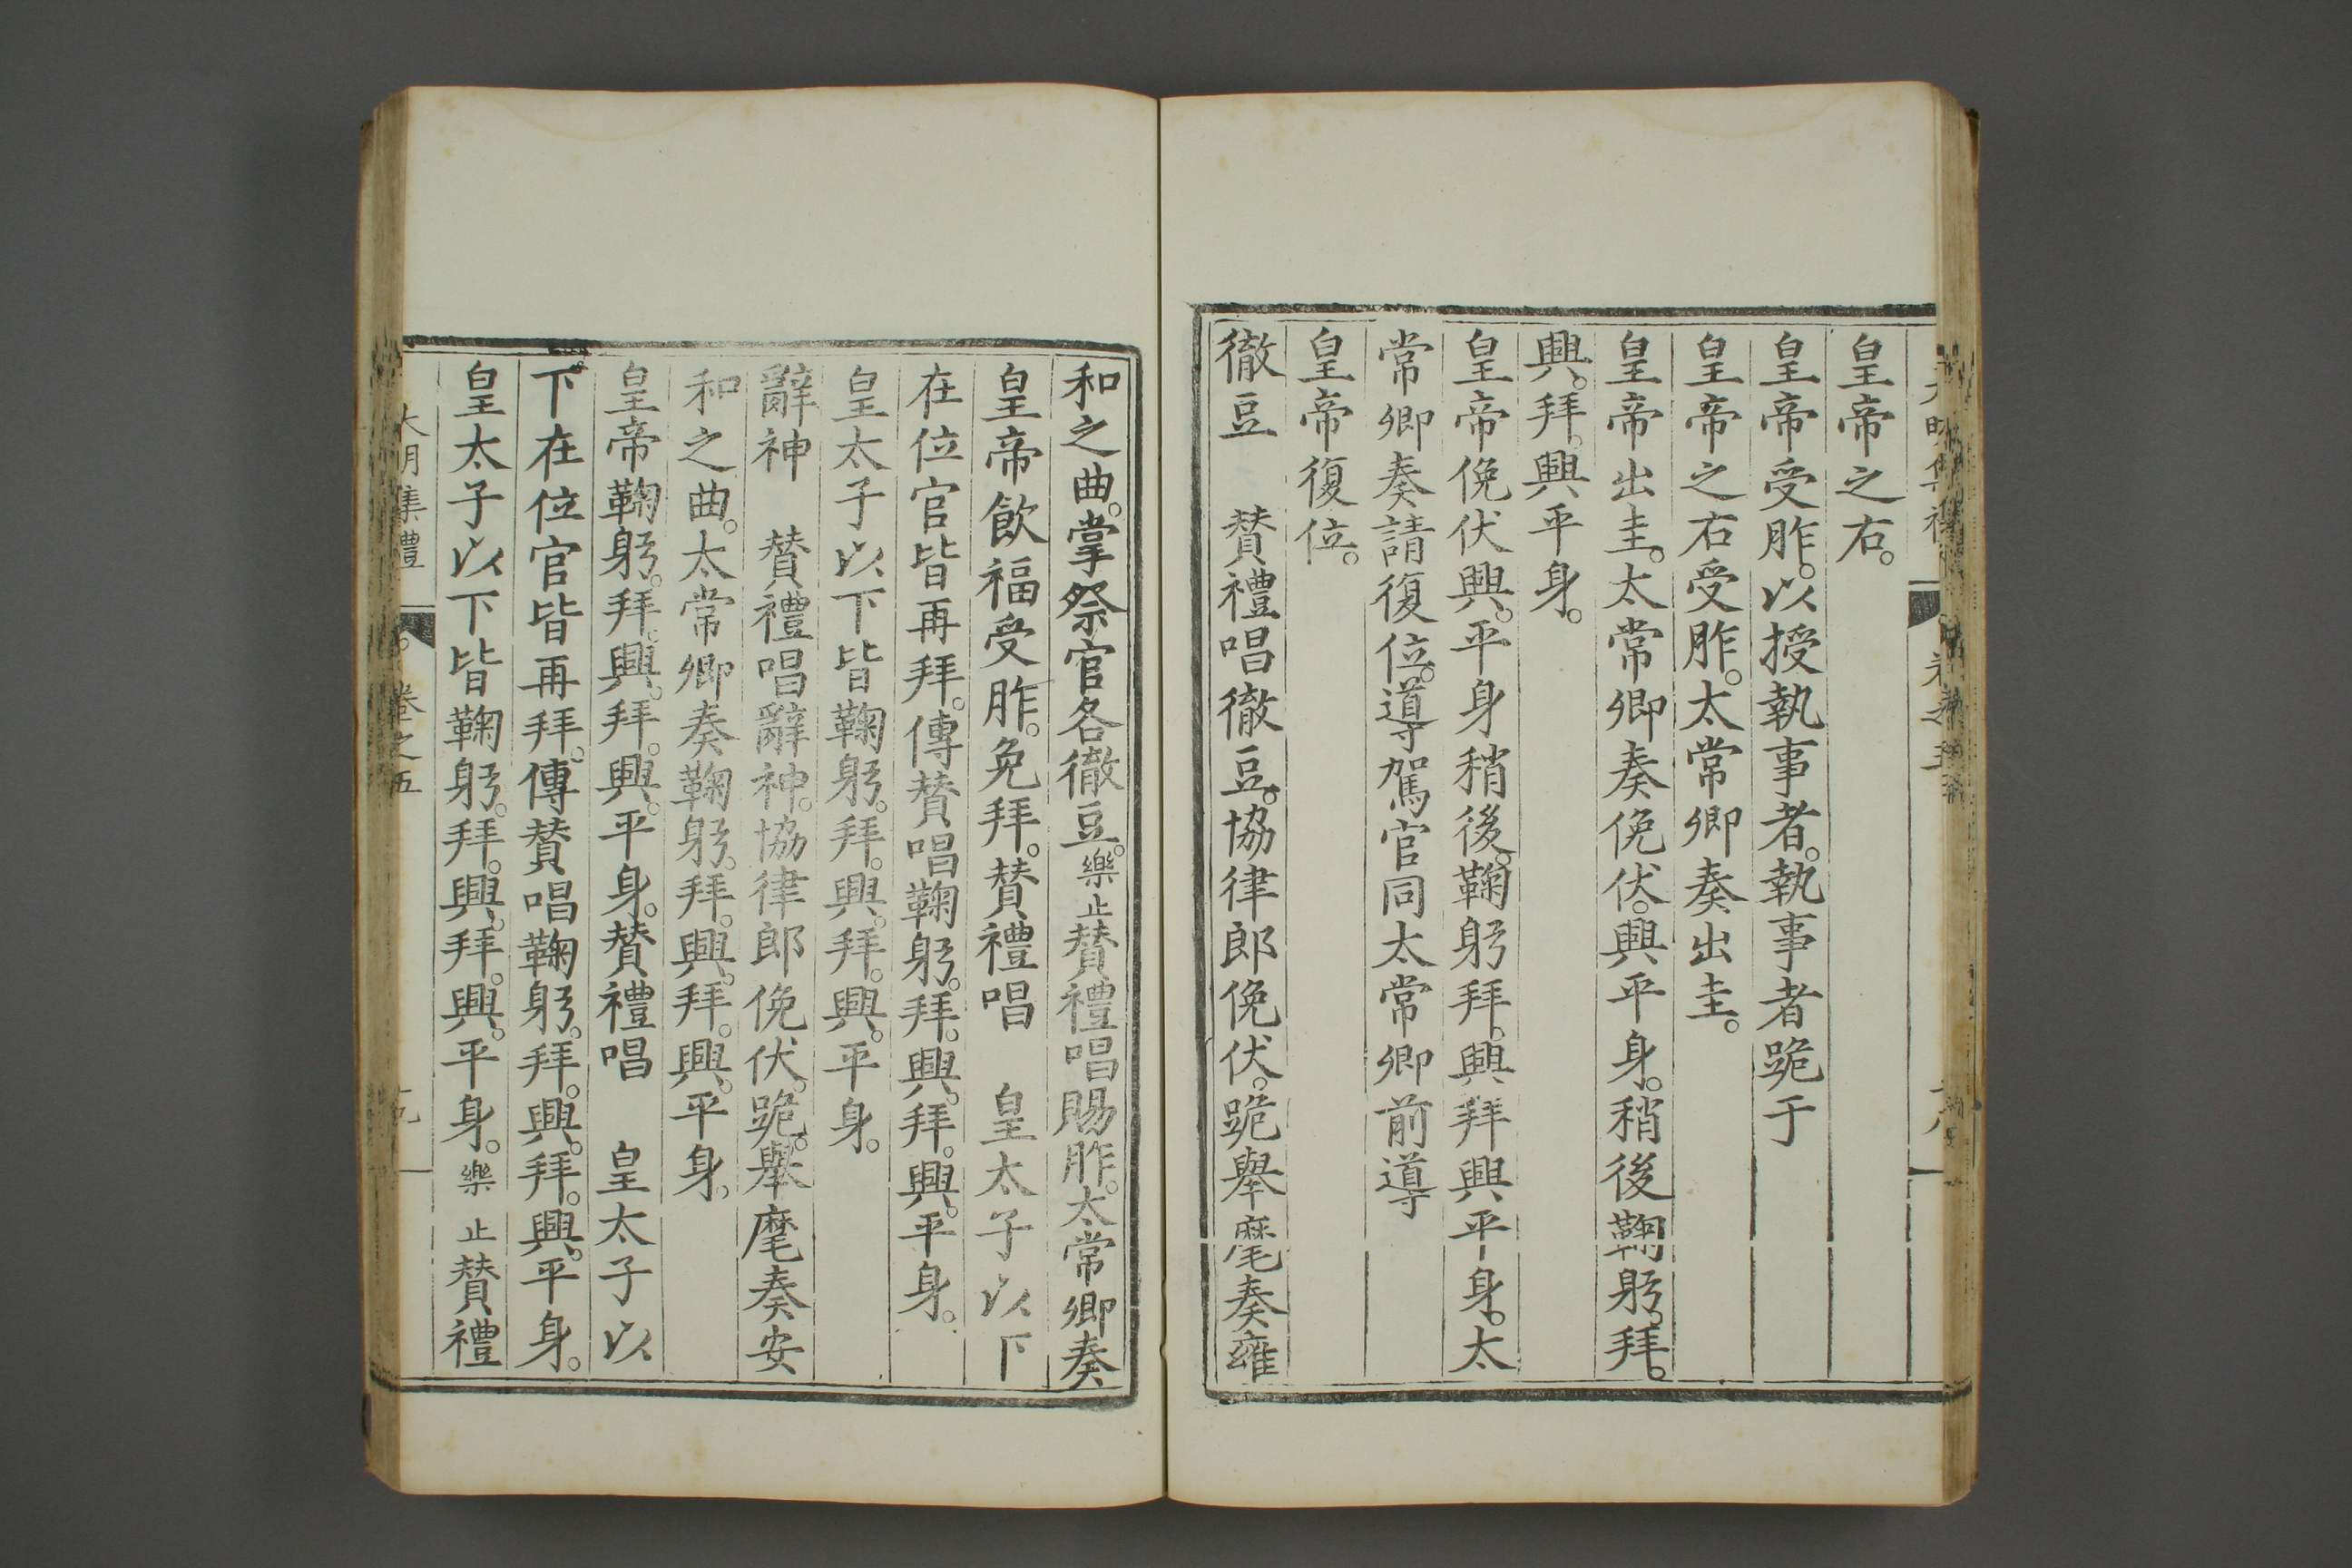 皇帝之右。
皇帝受胙。以授執事者。執事者跪于
皇帝之右受胙。太常卿奏出圭。
皇帝出圭。太常卿奏俛伏。興平身。稍後鞠躬。拜。
興。拜。興平身。
皇帝俛伏興。平身稍後。鞠躬拜。興拜興平身。太
常卿奏請復位。導駕官同太常卿前導
皇帝復位。
徹豆　贊禮唱徹豆。協律郎俛伏。跪舉麾奏雍
和之曲。掌祭官各徹豆。樂止贊禮唱賜胙。太常卿奏
皇帝飲福受胙。免拜。贊禮唱　皇太子以下
在位官皆再拜。傳贊唱鞠躬。拜。興。拜。興。平身。
皇太子以下皆鞠躬。拜。興。拜。興。平身。
辭神　贊禮唱辭神。協律郎俛伏。跪。舉麾奏安
和之曲。太常卿奏鞠躬。拜。興。拜。興。平身。
皇帝鞠躬。拜。興。拜。興。平身。贊禮唱　皇太子以
下在位官皆再拜。傳贊唱鞠躬。拜。興。拜。興。平身。
皇太子以下皆鞠躬。拜。興。拜。興。平身。樂止贊禮
大明集禮　卷之五　十九